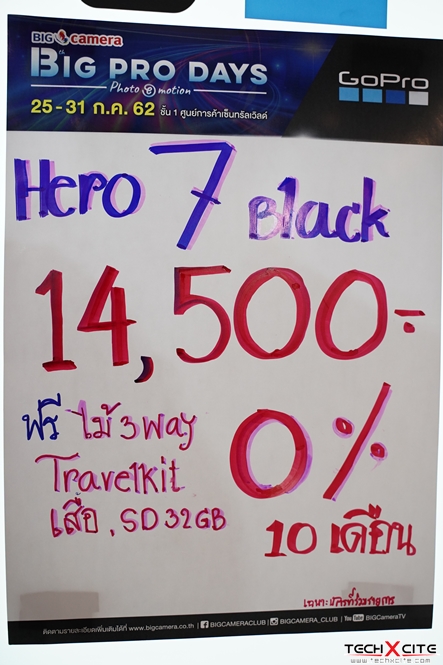 BIG Camera
BIG PRO DAYS
Photo e motion
25-31 ก.ค. 62 ชั้น 1 ศูนย์การค้าเซ็นทรัลเวิลด์
GoPro
Hero 7 Black
14,500.-
ฟรี ไม้ 3 way
Travelkit
เสื้อ, SD 32GB
0%
10 เดือน
เฉพาะบัตรที่ร่วมรายการ
ติดตามรายละเอียดเพิ่มเติมได้ที่ www.bigcamera.co.th | BIGCAMERACLUB | BIGCAMERA_CLUB | You Tube BIGCameraTV
TECHXCITE
www.techxcite.com